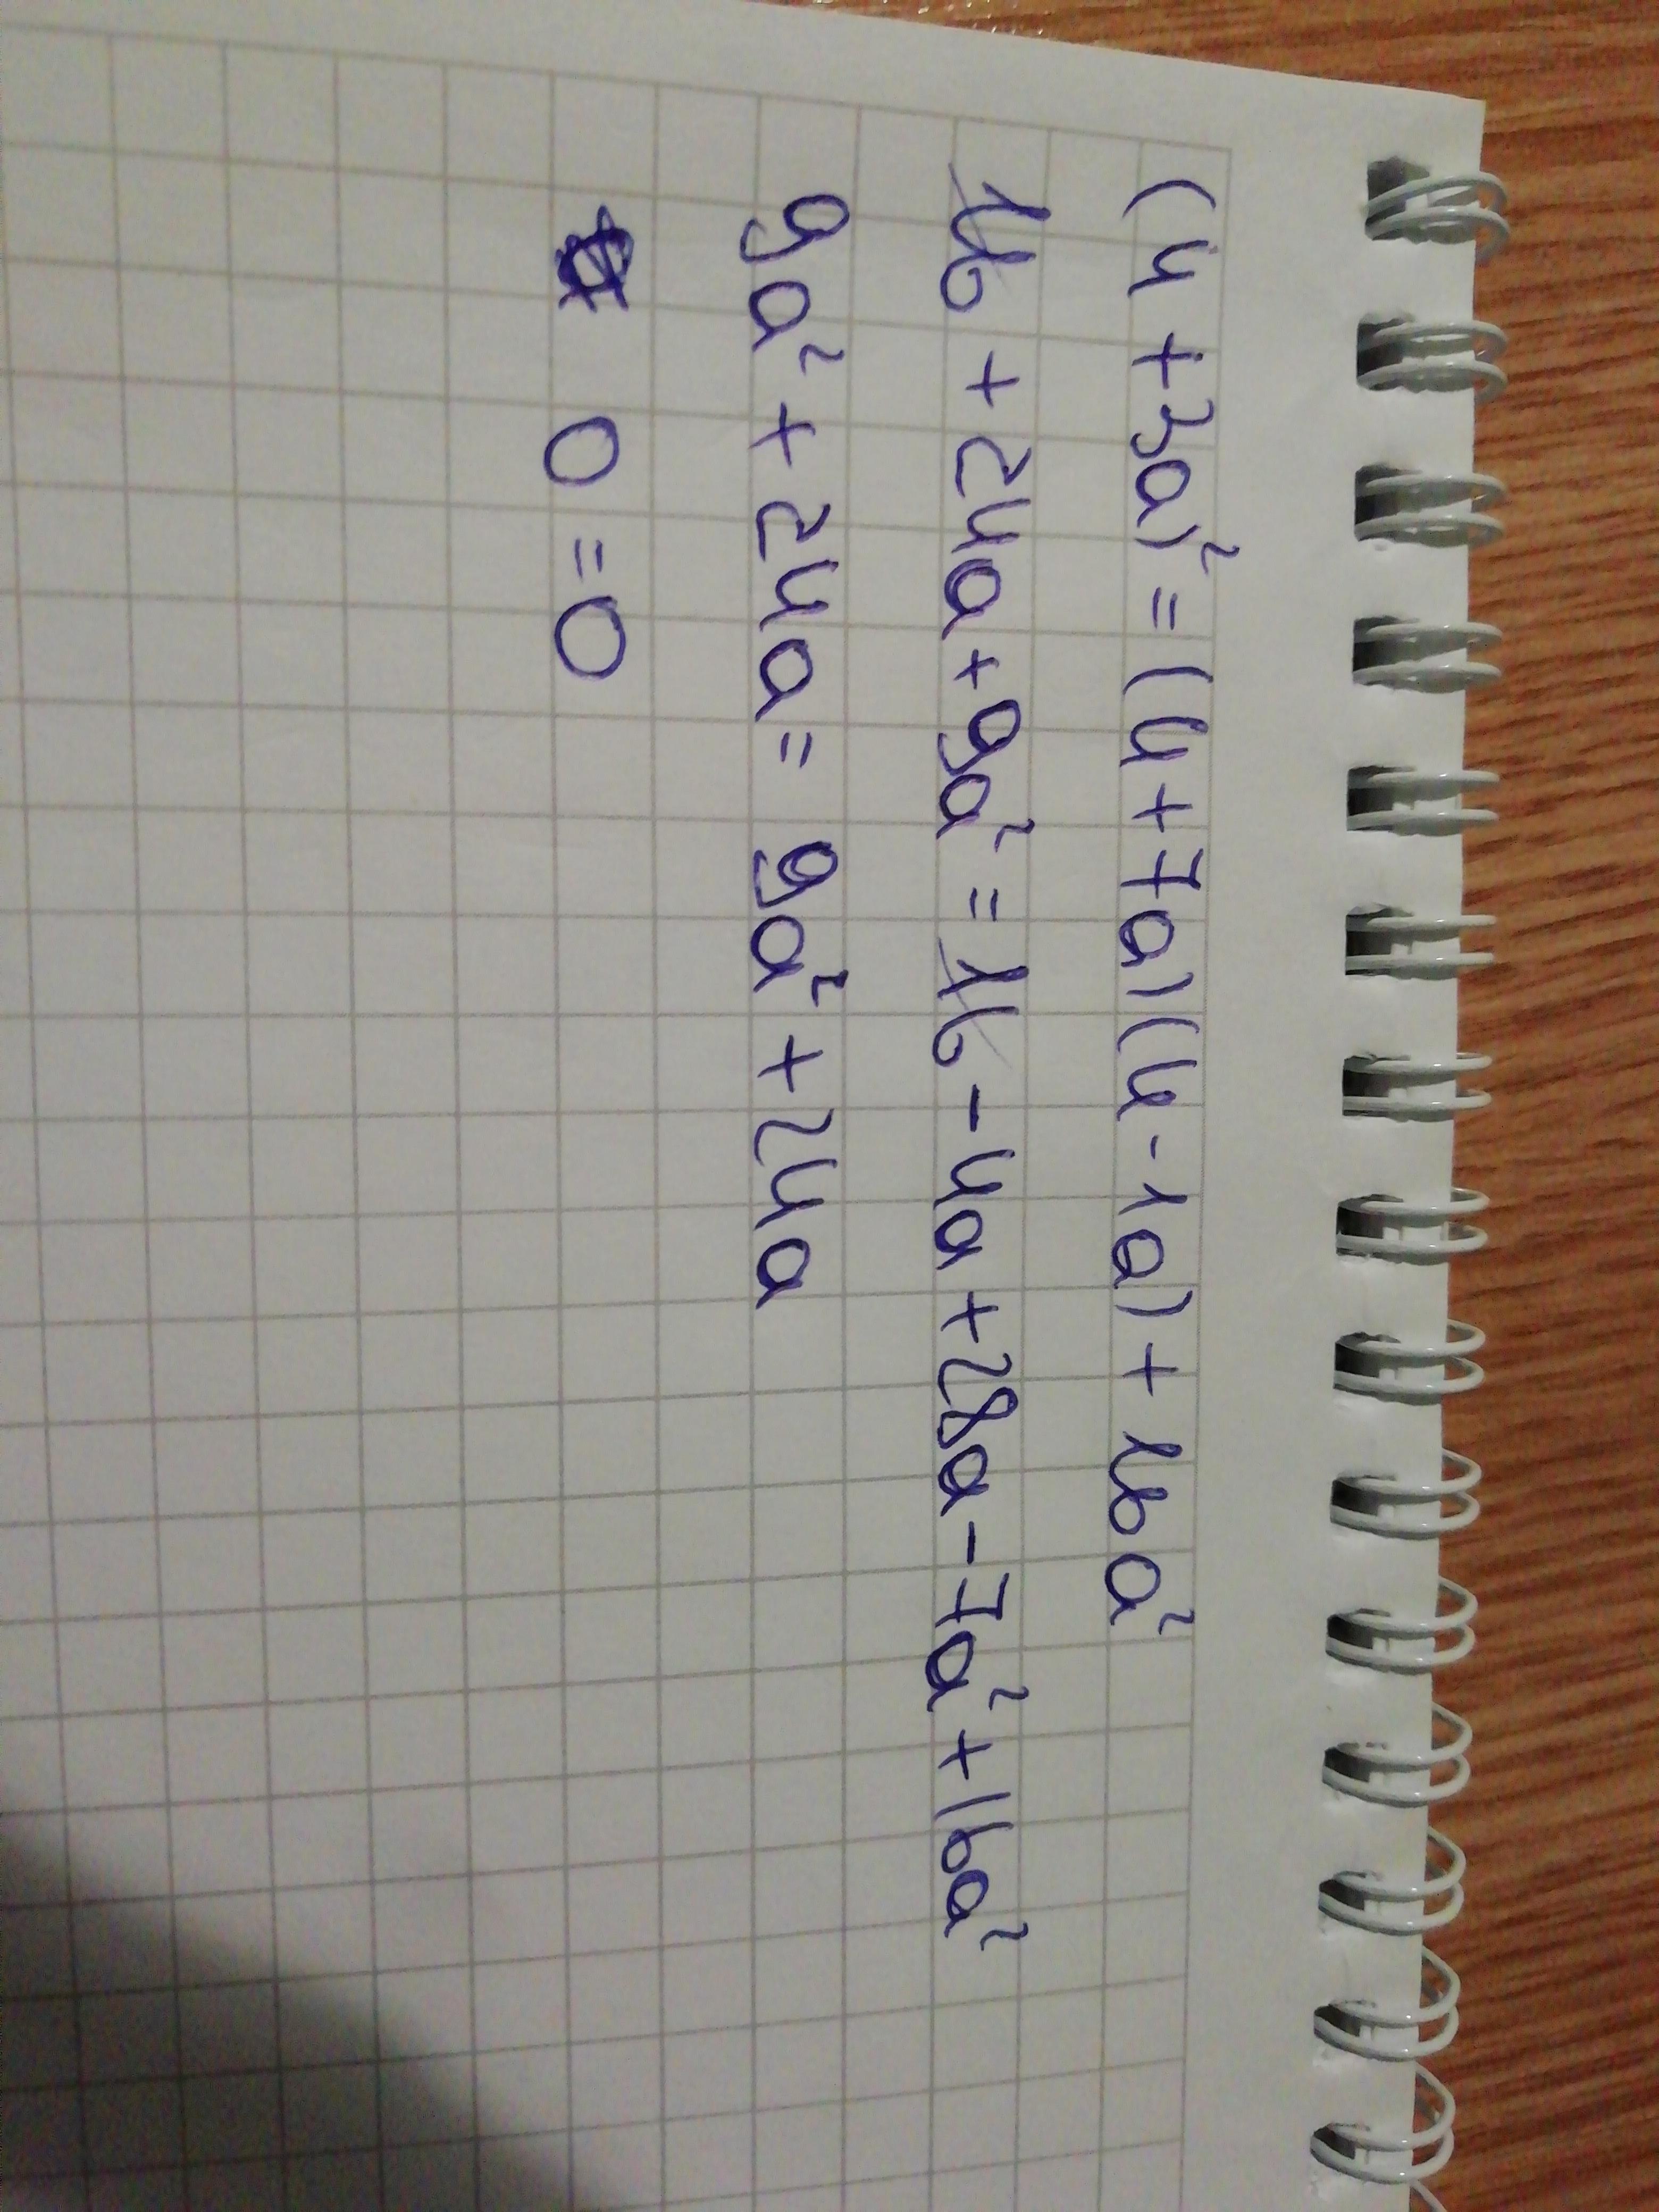 (4 + 3a)² = (4 + 7a)(4 - 1a) + 16a²
16 + 24a + 9a² = 16 - 4a + 28a - 7a² + 16a²
9a² + 24a = 9a² + 24a
0 = 0